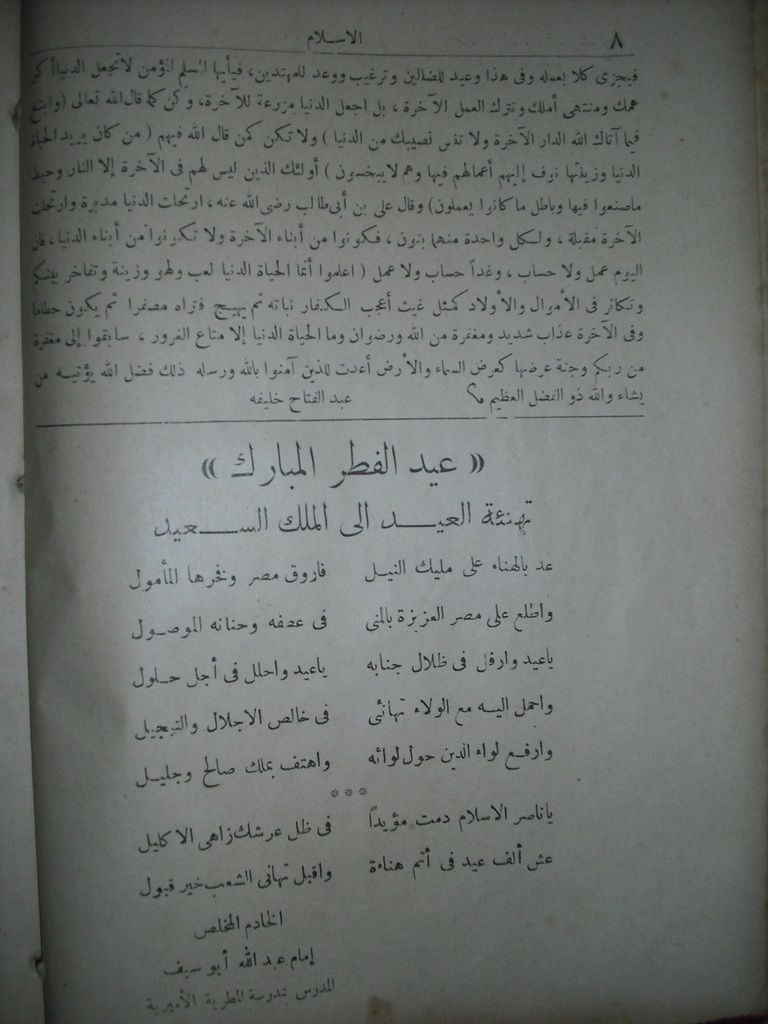 ٨
الاسلام
فيجزى كلا بعمله وفى هذا وعيد للضالين وترغيب ووعد للمهتدين، فيأيها المسلم المؤمن لاتجعل الدنيا أكبر
همك ومنتهى أملك وتترك العمل الآخرة ، بل اجعل الدنيا مزرعة للآخرة، وكن كما قال الله تعالى (وابتغ
فيما آتاك الله الدار الآخرة ولا تنس نصيبك من الدنيا ) ولا تكن كمن قال الله فيهم ( من كان يريد الحياة
الدنيا وزينتها نوف إليهم أعمالهم فيها وهم لايبخسون ) أولئك الذين ليس لهم فى الآخرة إلا النار وحبط
ماصنعوا فيها وباطل ما كانوا يعملون) وقال على بن أبى طالب رضى الله عنه ، ارتحلت الدنيا مدبرة وارتحلت
الآخرة مقبلة ، ولكل واحدة منهما بنون ، فكونوا من أبناء الآخرة ولا تكونوا من أبناء الدنيا ، فان
اليوم عمل ولا حساب ، وغداً حساب ولا عمل ( اعلموا أنما الحياة الدنيا لعب ولهو وزينة وتفاخر بينكم
وتكاثر فى الأموال والأولاد كمثل غيث أعجب الكفار نباته ثم يهيج فتراه مصفرا ثم يكون حطاما
وفى الآخرة عذاب شديد ومغفرة من الله ورضوان وما الحياة الدنيا إلا متاع الغرور ، سابقوا إلى مغفرة
من ربكم وجنة عرضها كعرض السماء والأرض أعدت للذين آمنوا بالله ورسله ذلك فضل الله يؤتيه من
يشاء والله ذو الفضل العظيم عبد الفتاح خليفه
« عيد الفطر المبارك »
تهنئة العيد الى الملك السعيد
عد بالهناء على مليك النيل فاروق مصر وفخرها المأمول
واطلع على مصر العزيزة بالمنى فى عطفه وحنانه الموصول
ياعيد وارفل فى ظلال جنابه ياعيد واحلل فى أجل حلول
واحمل اليه مع الولاء تهانئى فى خالص الاجلال والتبجيل
وارفع لواء الدين حول لوائه واهتف بملك صالح وجليل
* * *
ياناصر الاسلام دمت مؤيداً فى ظل عرشك زاهى الاكليل
عش ألف عيد فى أتم هناءة واقبل تهانى الشعب خير قبول
الخادم المخلص
إمام عبد الله أبو سيف
المدرس بمدرسة المطرية الأميرية